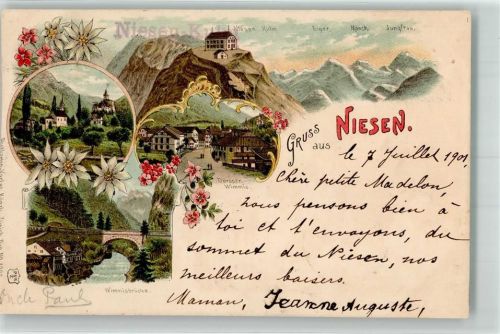 Niesen-Kulm
Niesen Kulm Eiger Mönch Jungfrau.
Gruss
aus
NIESEN.
le 7 Juillet 1901
Chère petite Madelon,
Nous pensons bien à
toi et t'envoyons, du
sommet du Niesen, nos
meilleurs baisers.
Maman, Jeanne Auguste,
Wimmis.
Wimmisbrücke.
Oncle Paul